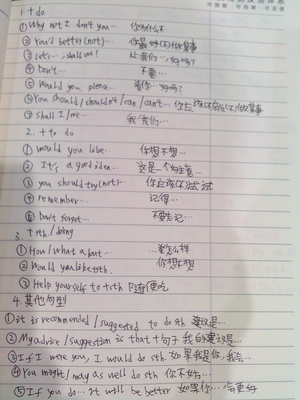 1. + do
① Why not / don't you… 你为什么不
② You'd better (not)… 你最好(不)做某事
③ Let's… shall we? 让我们…好吗?
④ Don't… 不要…
⑤ Would you please… 请你…好吗?
⑥ You should/shouldn't/can/can't… 你应该(不)做某事
⑦ Shall I/we… 我/我们…
2. + to do
① would you like… 你想不想…
② It's a good idea… 这是一个好主意
③ you should try (not)… 你应该(不)试试
④ remember… 记得…
⑤ Don't forget… 不要忘记…
3. + sth / doing
① How/What about… …怎么样
② Would you like sth. 你想不想
③ Help yourself to + sth 随便吃
4. 其他句型
① it is recommended / suggested to do sth 建议是…
② My advice / suggestion is that + 句子 我的建议是…
③ If I were you, I would do sth. 如果我是你,我会…
④ You might / may as well do sth 你不妨…
⑤ If you do… it will be better 如果你…会更好